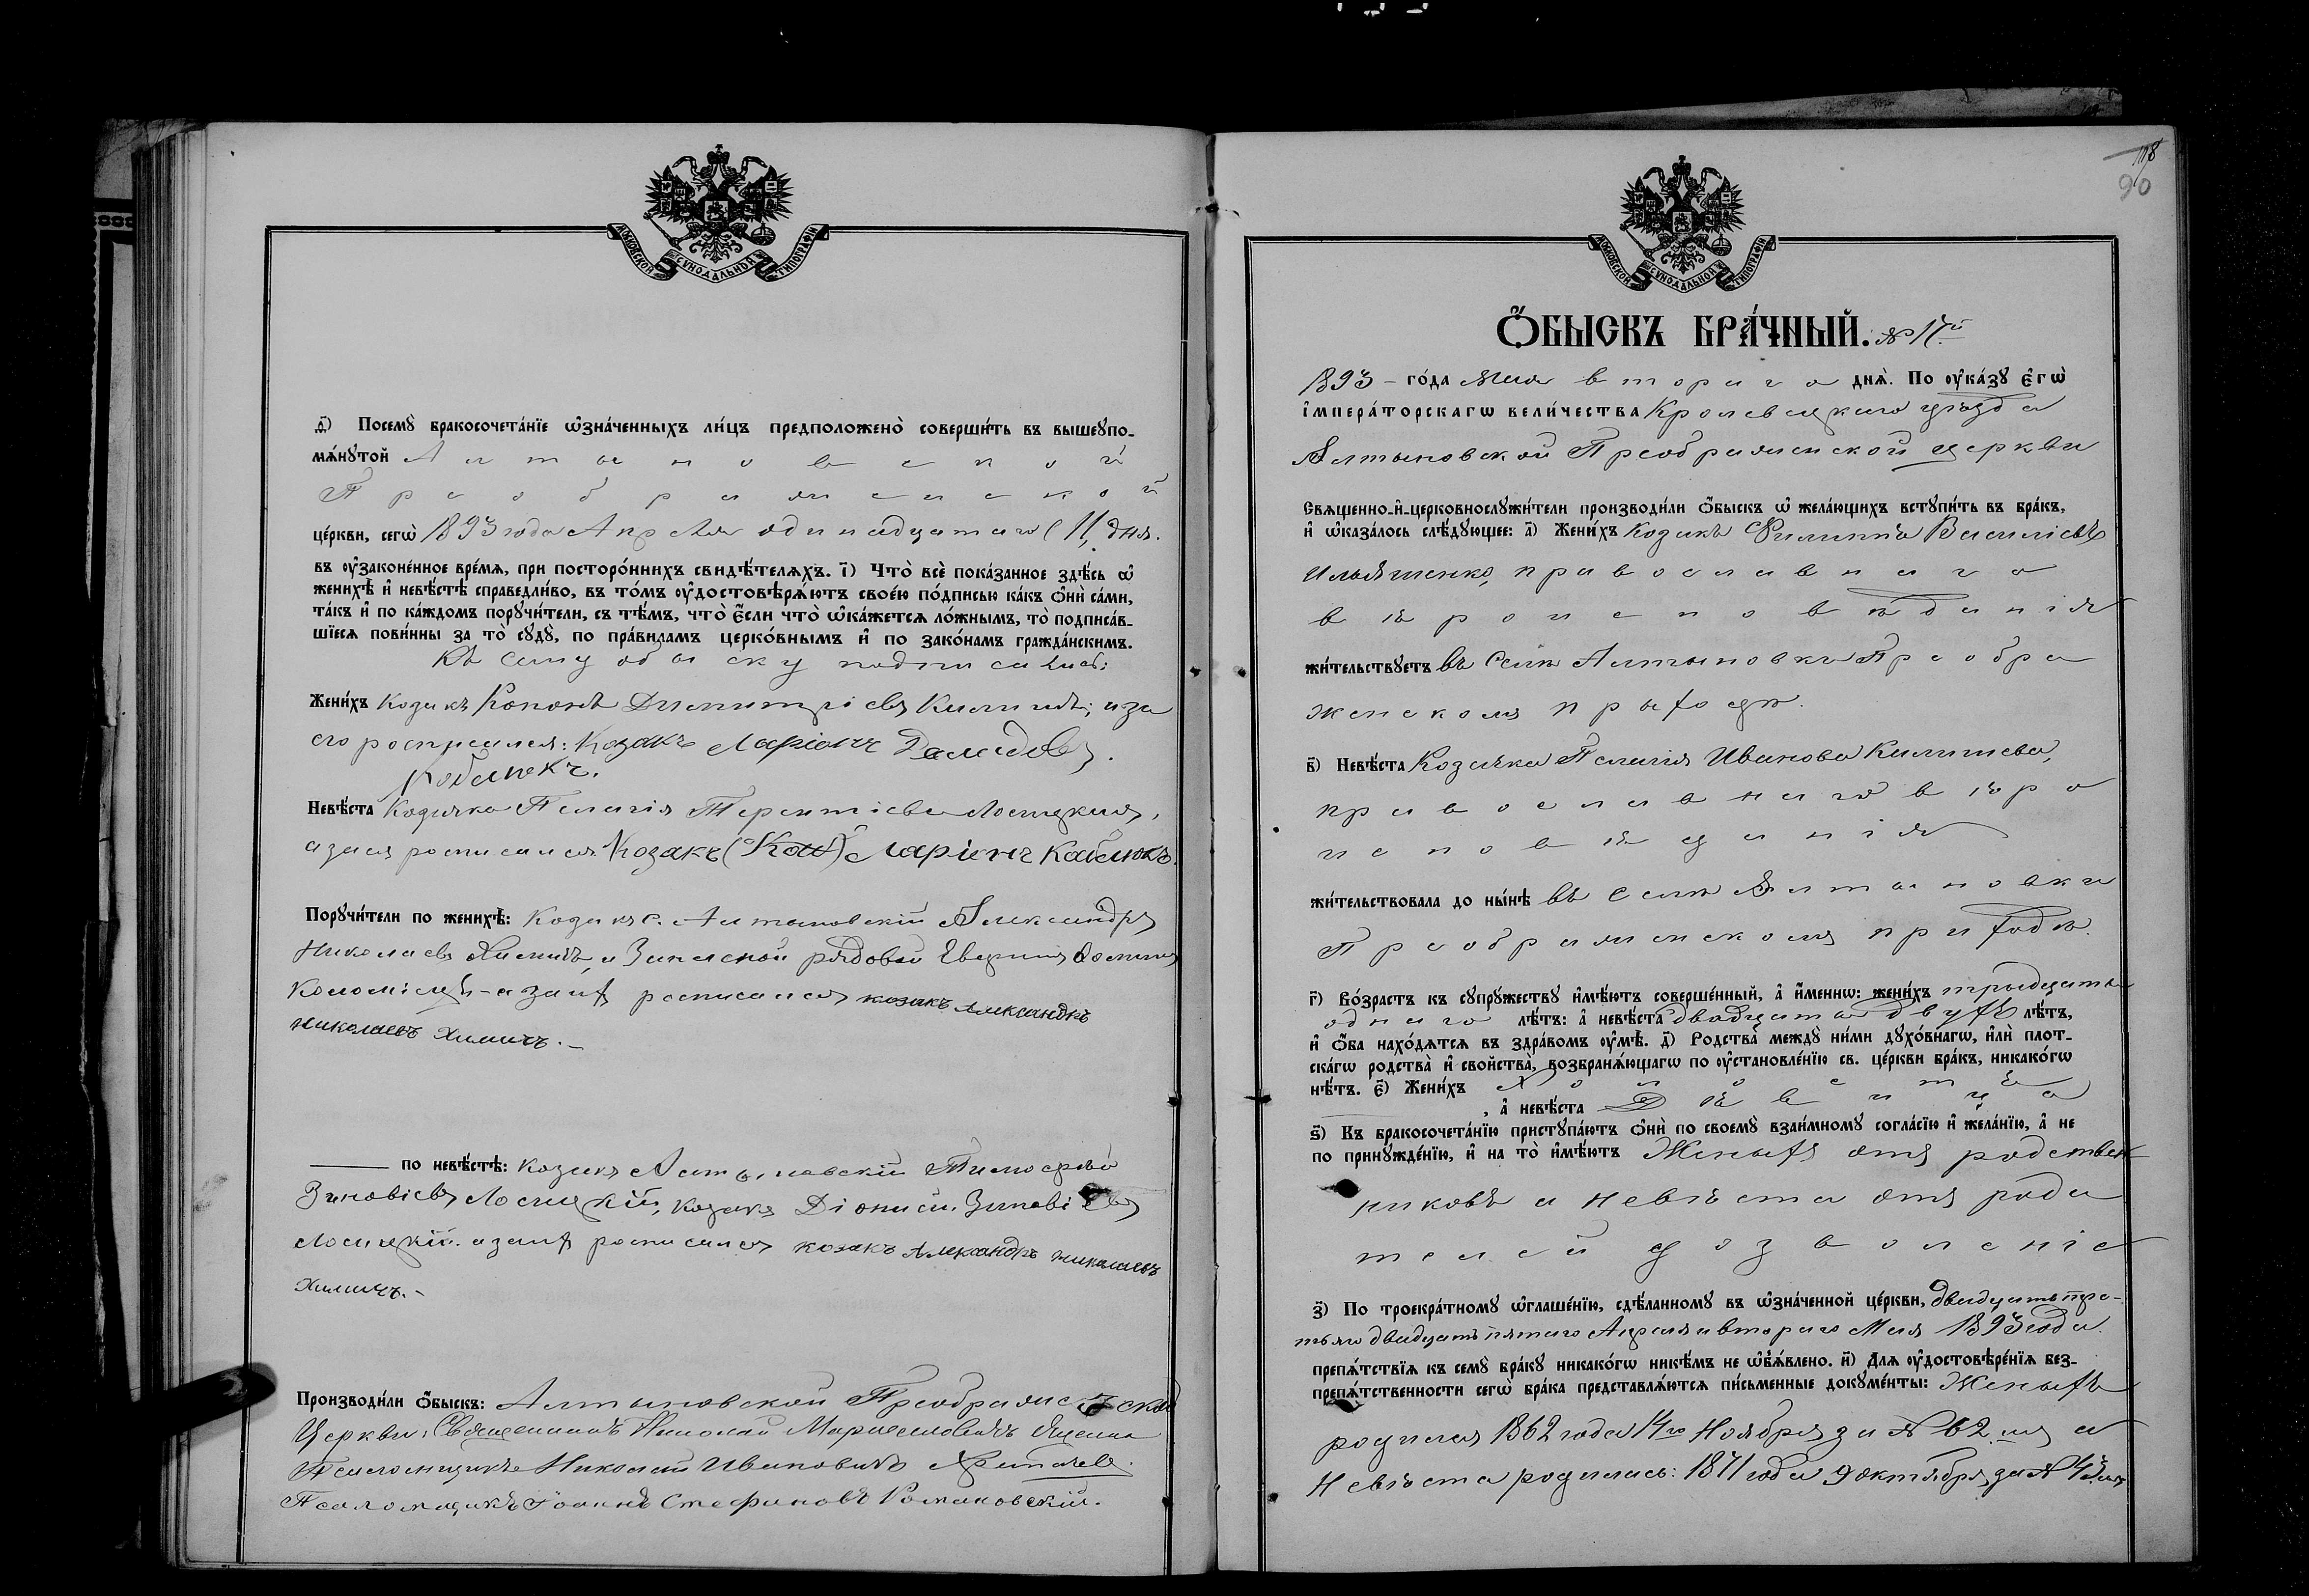 МОСКОВСКОЙ СУНОДАЛЬНОЙ ТИПОГРАФІИ
ѳ҃) Посемꙋ̀ бракосочета́нїе ѡ҆зна́ченныхъ ли́цъ предположено̀ соверши́ть въ вышеꙋпо-
мѧ́нꙋтой Алтыновской
Преображенской
це́ркви, сегѡ̀ 1893 года Апреля одинадцатаго (11, дня.
въ ᲂу҆зако́ненное вре́мѧ, при посторо́ннихъ свидѣ́телѧхъ. і҃) Что̀ всѐ пока́занное здѣ́сь ѡ҆
женихѣ̀ и҆ невѣ́стѣ справедли́во, въ то́мъ ᲂу҆достовѣрѧ́ютъ свое́ю по́дписью ка́къ ѻ҆нѝ са́ми,
та́къ и҆ по ка́ждомъ порꙋчи́тели, съ тѣ́мъ, что̀ є҆́сли что̀ ѡ҆ка́жетсѧ ло́жнымъ, то̀ подписа́в-
шїесѧ пови́нны за то̀ сꙋдꙋ̀, по пра́виламъ церко́внымъ и҆ по зако́намъ гражда́нскимъ.
Къ сему обыску подписались:
Жени́хъ Козакъ Кононъ Димитріевъ Килишъ; а за
его росписался: Козакъ Ларіонъ Демидовъ
Кобылекъ.
Невѣ́ста Козачка Пелагія Терентіева Лосицкая,
а за ея росписался Козакъ Ларіонъ
Порꙋчи́тели по женихѣ̀: Козакъ с. Алтыновскій Александръ
Николаевъ Химичъ, и Запасной рядовой
Коломіецъ - а за них росписался козакъ Александръ
Николаевъ Химичъ. -
по невѣ́стѣ: Козакъ Алтыновскій Тимофей
Зиновіевъ Лосицкій, козакъ Діонисій Зиновіевъ
Лосицкій. а за них росписался козакъ Александръ Николаевъ
Химичъ. -
Производи́ли ѻ҆́быскъ: Алтыновской Преображенской
Церкви: Священникъ Николай
Псаломщикъ Николай Ивановичъ
Псаломщикъ Іоаннъ Стефановъ Романовскій.
118
90
МОСКОВСКОЙ СУНОДАЛЬНОЙ ТИПОГРАФІИ
Ѻ҆́БЫСКЪ БРА́ЧНЫЙ. № 17й
1893 - го́да Мая второго днѧ̀. По ᲂу҆ка́зꙋ є҆гѡ̀
і҆мпера́торскагѡ вели́чества Кролевецкаго уѣзда
Алтыновской Преображенской церкви
Свѧще́нно-и҆-церковнослꙋжи́тели производи́ли ѻ҆́быскъ ѡ҆ жела́ющихъ встꙋпи́ть въ бра́къ,
и҆ ѡ҆каза́лось слѣ́дꙋющее: а҃) Жени́хъ Козакъ Филиппъ Василіевъ
Ильяшенко, православнаго
вѣроисповѣданія
жи́тельствꙋетъ въ селѣ Алтыновкѣ Преобра
женскомъ прыходѣ.
в҃) Невѣ́ста Козачка Пелагія Иванова Килишева,
православнаго вѣро
исповѣданія
жи́тельствовала до ны́нѣ въ селѣ Алтыновки
Преображенскомъ приходѣ.
г҃) Во́зрастъ къ сꙋпрꙋ́жествꙋ и҆мѣ́ютъ соверше́нный, а҆ и҆́меннѡ: жени́хъ трыдцать
одного лѣ́тъ: а҆ невѣ́ста двадцать двухъ лѣ́тъ,
и҆ ѻ҆́ба нахо́дѧтсѧ въ здра́вомъ ᲂу҆мѣ̀. д҃) Родства̀ междꙋ̀ ни́ми дꙋхо́внагѡ, и҆лѝ плот-
ска́гѡ родства̀ и҆ свойства̀, возбранѧ́ющагѡ по ᲂу҆становле́нїю св. це́ркви бра́къ, никако́гѡ
нѣ́тъ. є҃) Жени́хъ Холостъ
, а҆ невѣ́ста Дѣвица
ѕ҃) Къ бракосочета́нїю пристꙋпа́ютъ ѻ҆нѝ по своемꙋ̀ взаи́мномꙋ согла́сїю и҆ жела́нїю, а҆ не
по принꙋжде́нїю, и҆ на то̀ и҆мѣ́ютъ Женыхъ отъ родствен
никовъ а невѣста отъ роди
телей дозволеніе
з҃) По троекра́тномꙋ ѡ҆глаше́нїю, сдѣ́ланномꙋ въ ѡ҆зна́ченной це́ркви, двадцать тре-
тьяго двадцать пятаго Апреля и второго Мая 1893 года.
препѧ́тствїѧ къ семꙋ̀ бра́кꙋ никако́гѡ никѣ́мъ не ѡ҆б̾ѧ́влено. и҃) Длѧ ᲂу҆достовѣре́нїѧ без-
препѧ́тственности сегѡ̀ бра́ка представлѧ́ютсѧ пи́сьменные докꙋме́нты: Женыхъ
родился 1862 года 14го Ноября за № 62.мъ а
Невѣста родилась: 1871 года 9 октября за № 43.мъ